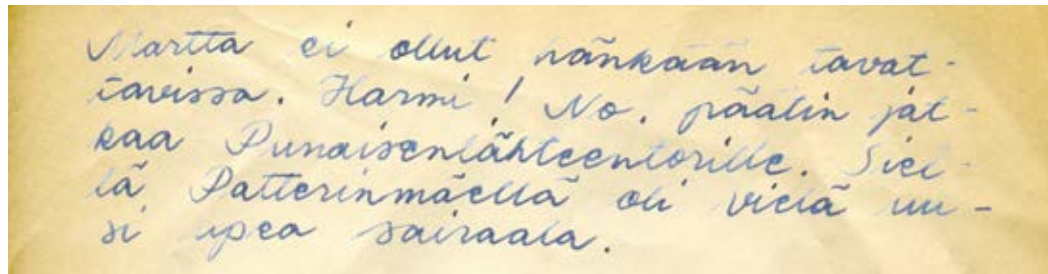 Martta ei ollut hänkään tavat-
tavissa. Harmi! No, päätin jat-
kaa Punaisenlähteentorille. Siel-
lä Patterinmäellä oli vielä uu-
si upea sairaala.